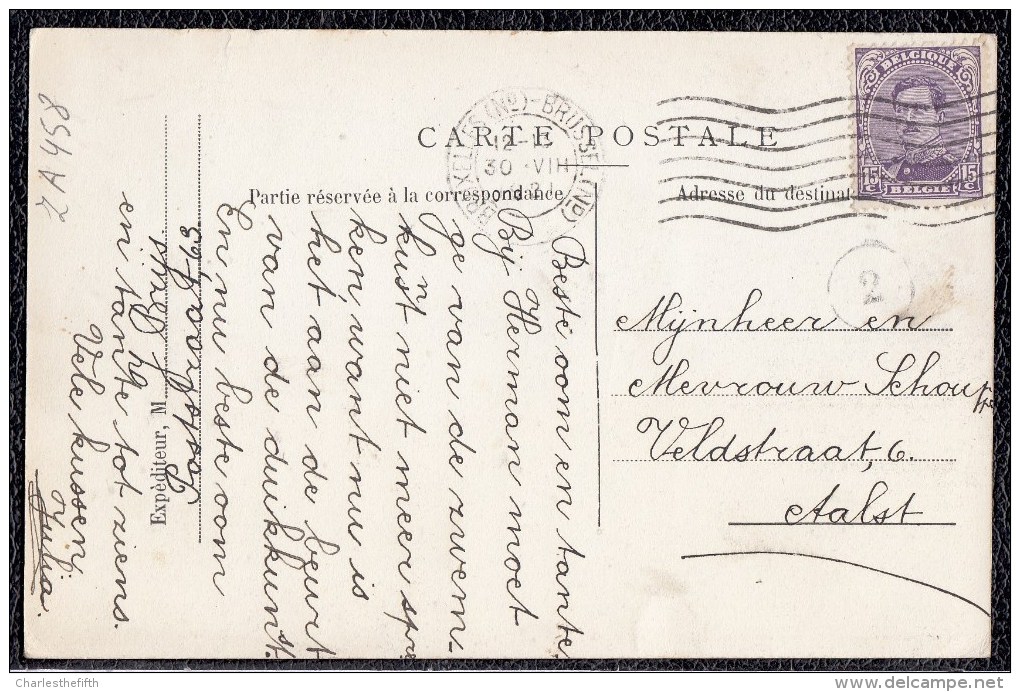 CARTE POSTALE
Partie réservée à la correspondance
Adresse du destinat
BELGIQUE
15 c
15 c
BELGIË
(No)-BRUSSEL(ND)
12-
30 VIII
2
Mijnheer en
Mevrouw Schoupp
Veldstraat, 6.
Aalst
Beste oom en tante,
Bij Herman moet
ge van de zwem-
kunst niet meer spre
ken, want nu is
het aan de beurt
van de duikkunst.
En nu beste oom
en tante tot ziens.
Vele kussen,
Julia.
Expéditeur, M
2A458
CharlestheFifth
delcampe.net